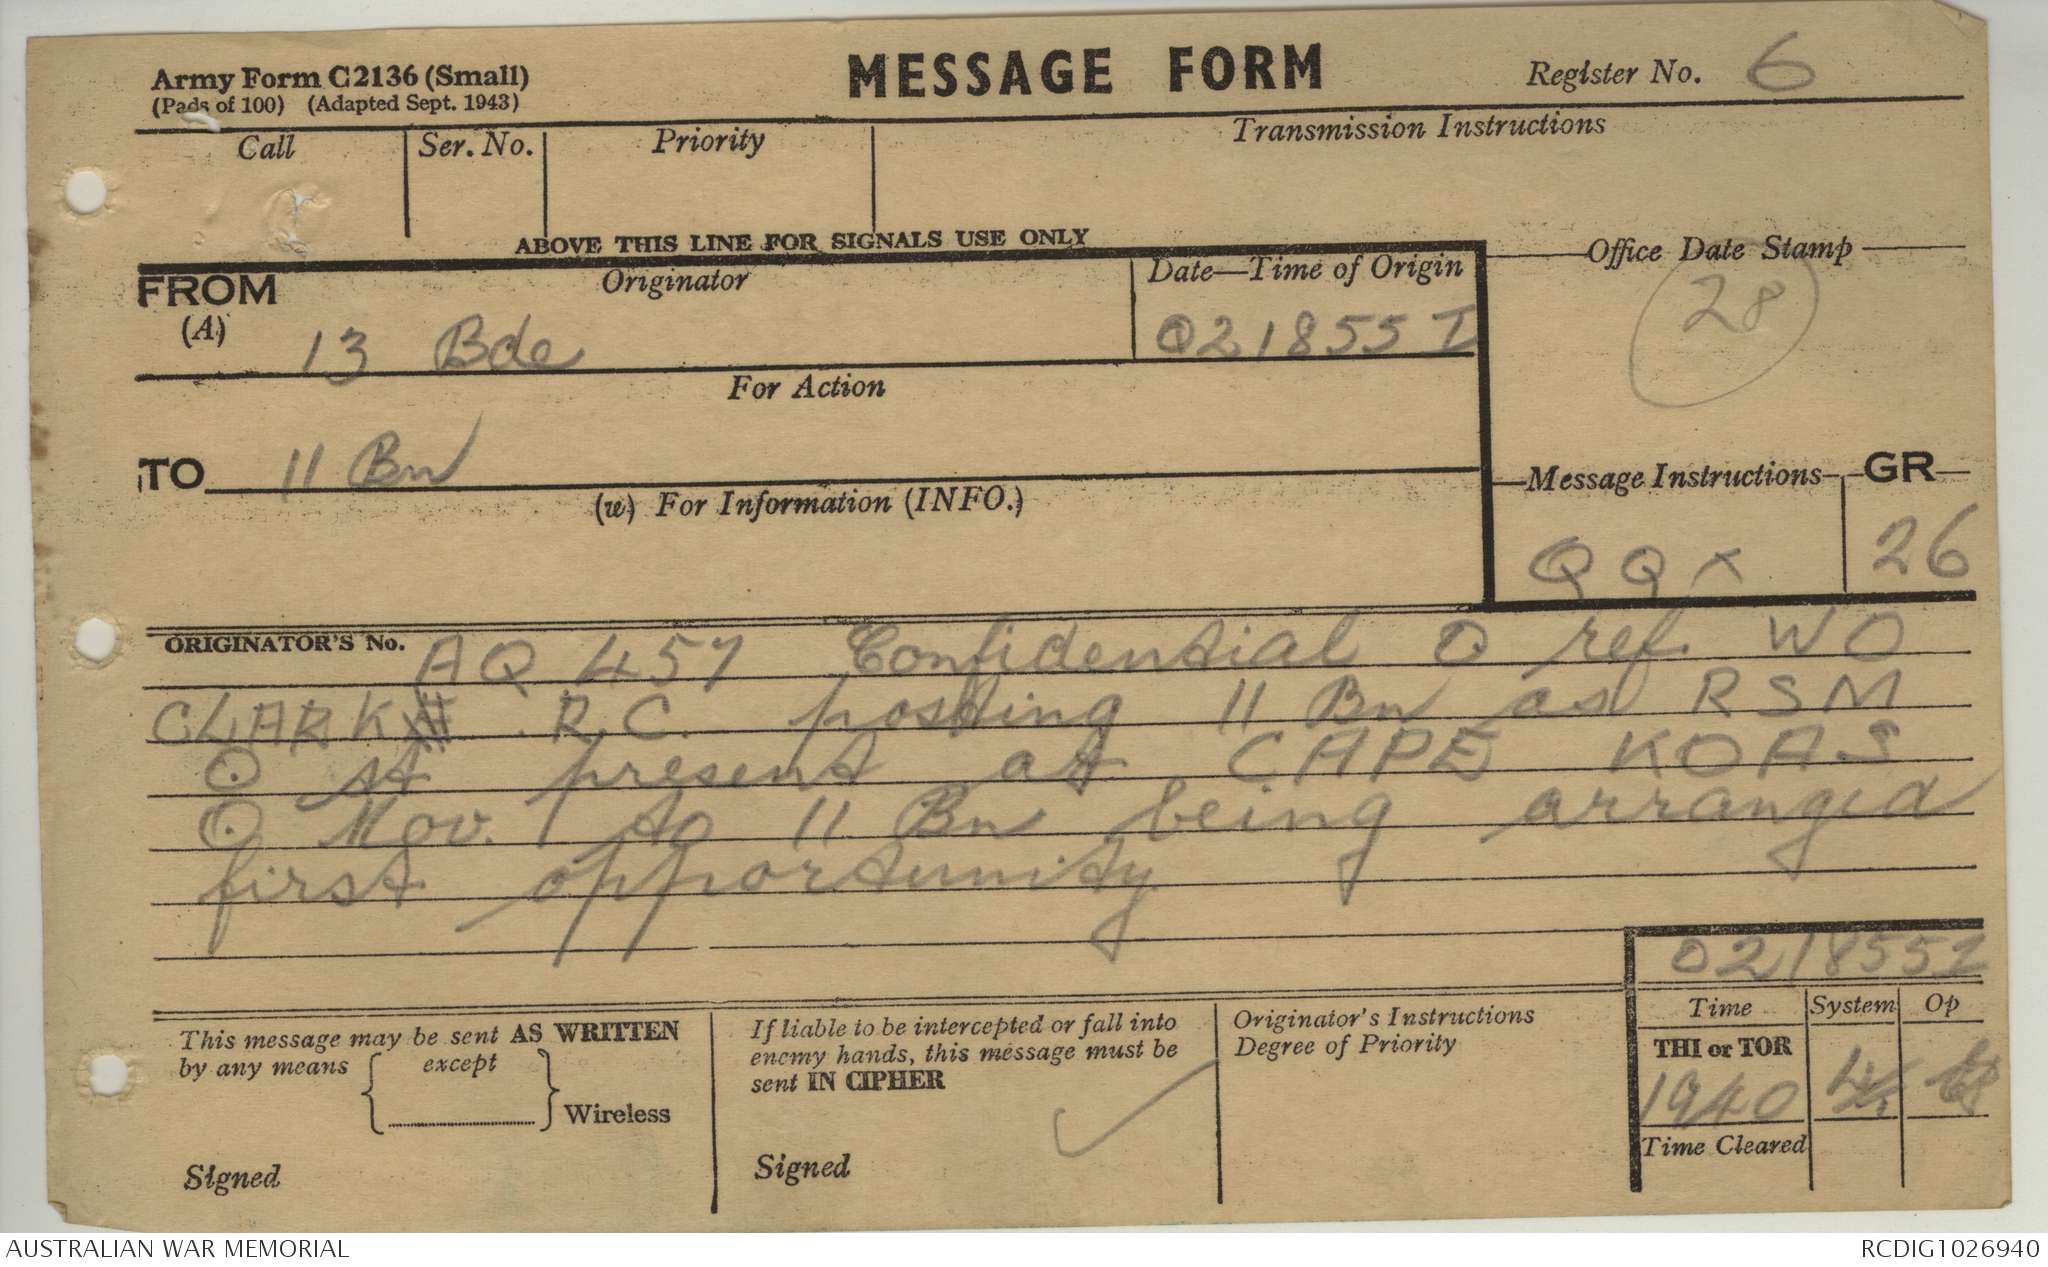 Army Form C2136 (Small)
(Pads of 100) (Adapted Sept. 1943)
MESSAGE FORM
Register No. 6
Call
Ser. No.
Priority
Transmission Instructions
ABOVE THIS LINE FOR SIGNALS USE ONLY
FROM
(A)
Originator
13 Bde
Date—Time of Origin
021855 I
Office Date Stamp
28
For Action
TO
11 Bn
(w) For Information (INFO.)
Message Instructions
QQX
GR
26
ORIGINATOR'S No.
AQ 457 Confidential O ref. WO
CLARK R.C. posting 11 Bn as RSM
O at present at CAPE KOAS
O Mov. to 11 Bn being arranged
first opportunity
021855I
This message may be sent AS WRITTEN
by any means { except } Wireless
Signed
If liable to be intercepted or fall into
enemy hands, this message must be
sent IN CIPHER
Signed
Originator's Instructions
Degree of Priority
Time
System
Op
THI or TOR
1940
Time Cleared
AUSTRALIAN WAR MEMORIAL
RCDIG1026940